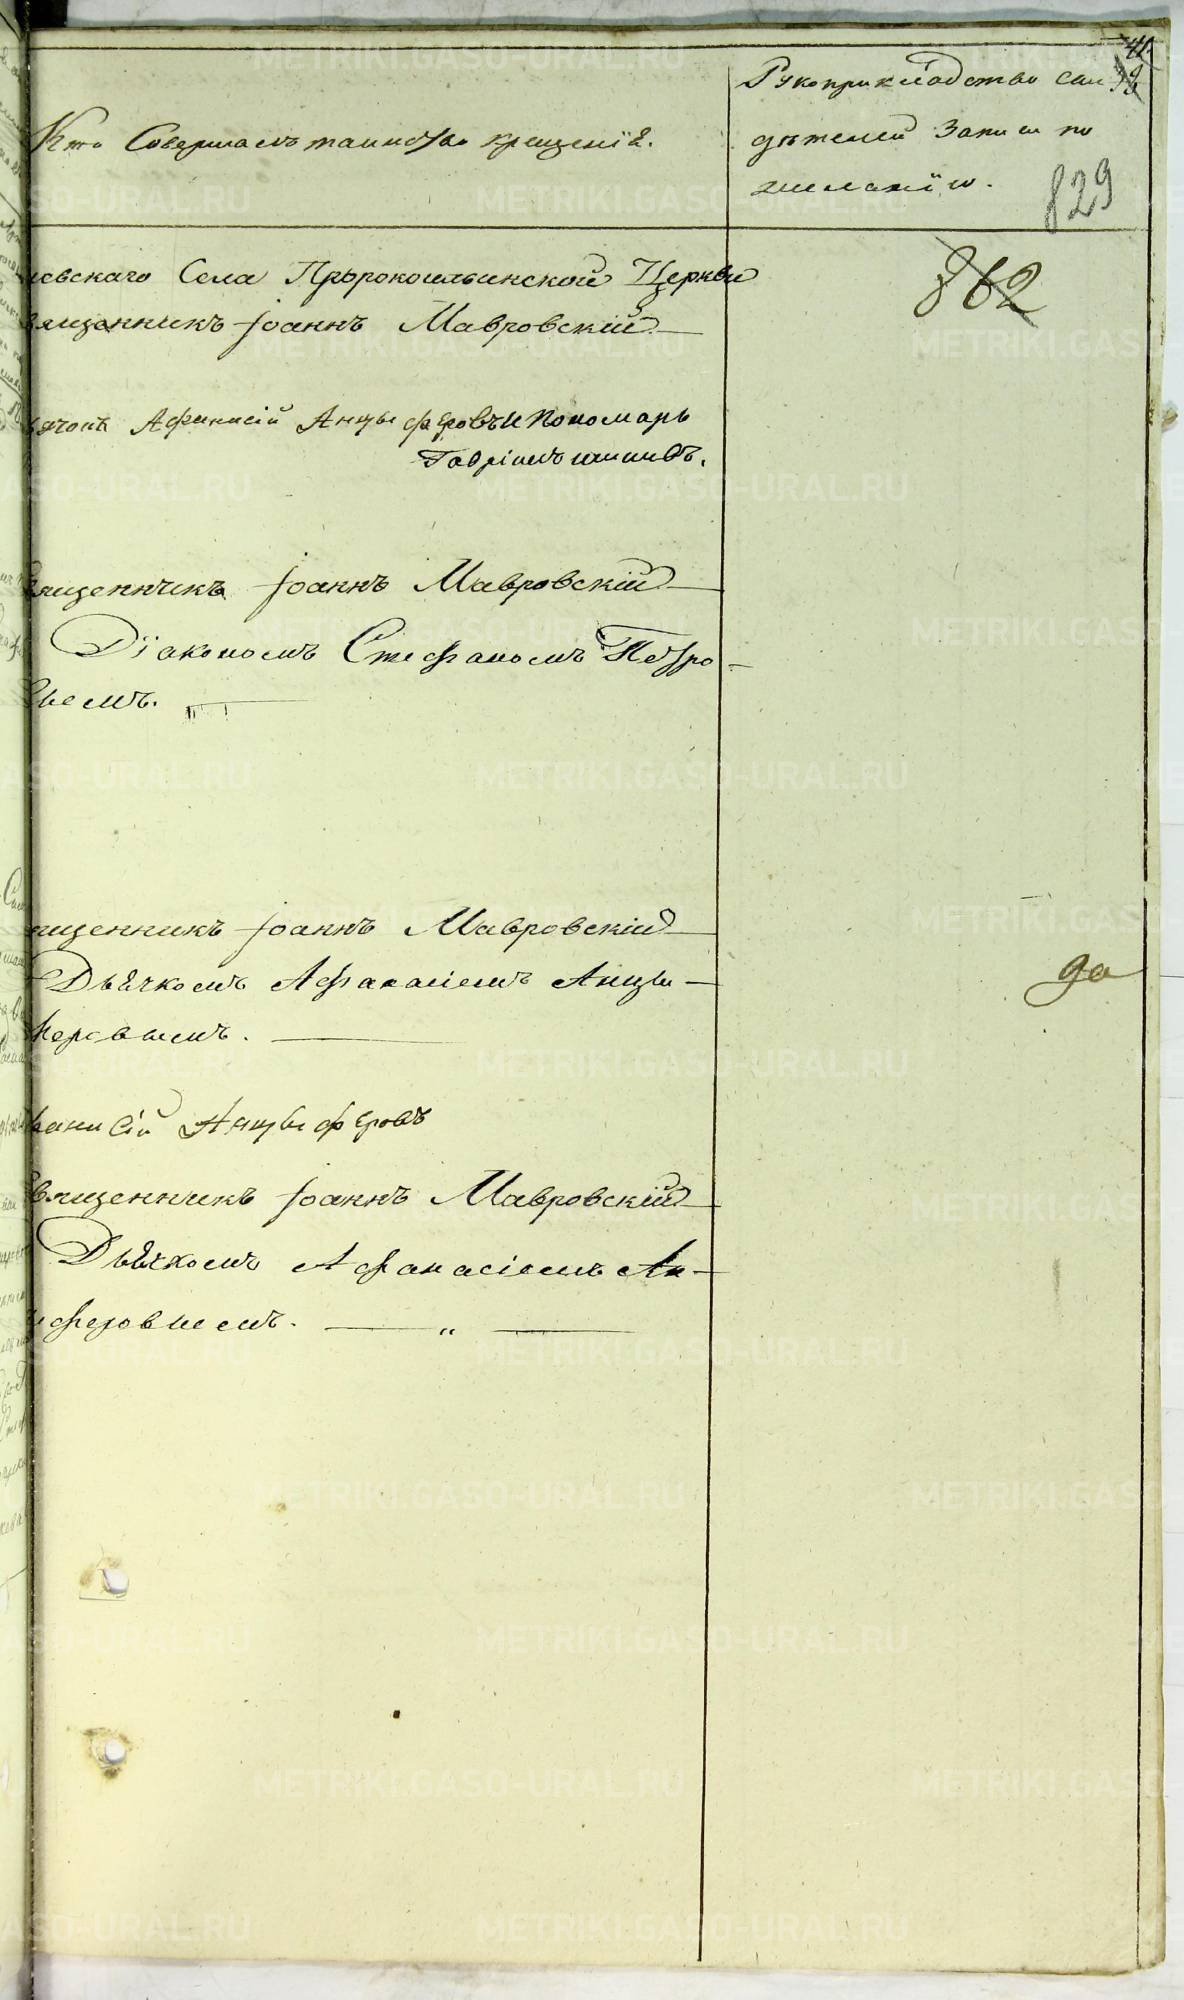 41
Рукоприкладство сви
Кто Совершалъ таинство крещенія.
дѣтелей Записи по
желанію.
829
862
левскаго Села Пророкоильинской Церкви
вященникъ Іоаннъ Мавровскій
ьячокъ Афанасій Анцыферовъ и Пономарь
Гавріилъ
Священникъ Іоаннъ Мавровскій
Діакономъ Стефаномъ Петро
вымъ.
вященникъ Іоаннъ Мавровскій
Дьячкомъ Афанасіемъ Анцы
феровымъ.
фанасій Анцыферовъ
Священникъ Іоаннъ Мавровскій
Дьячкомъ Афанасіемъ Ан
цыферовымъ.
до
METRIKI.GASO-URAL.RU